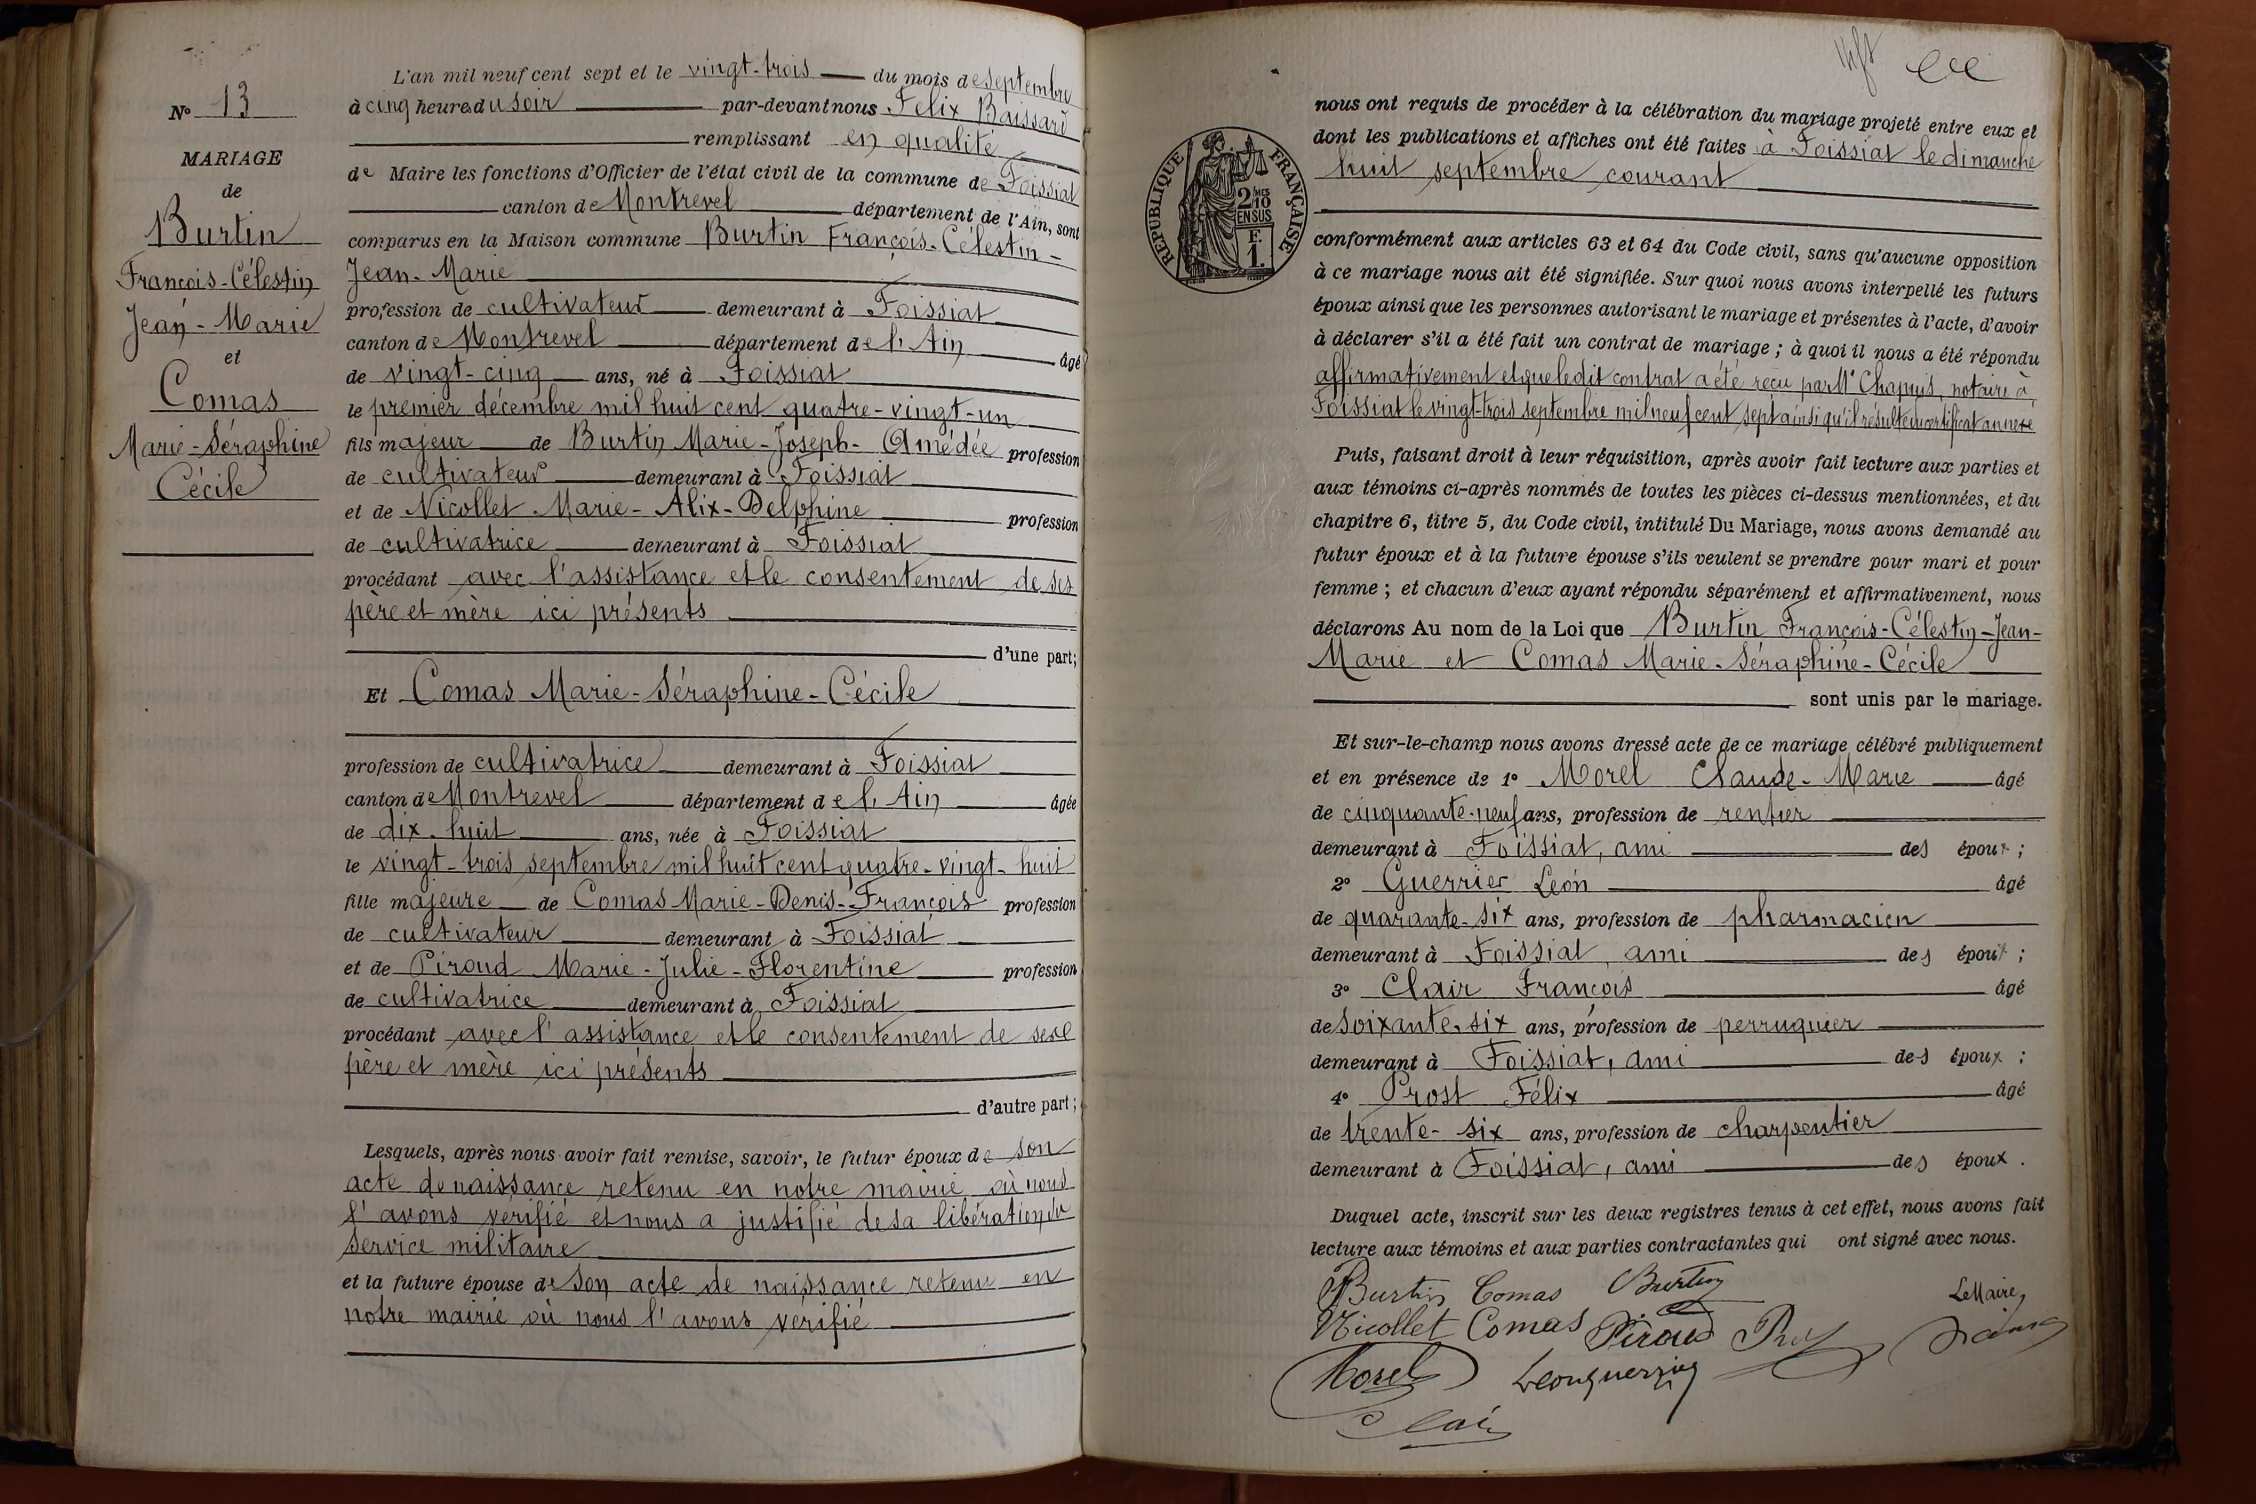 N° 13
MARIAGE
de
Burtin
François-Célestin
Jean-Marie
et
Comas
Marie-Séraphine
Cécile
L'an mil neuf cent sept et le vingt-trois du mois de septembre
à cinq heures du soir par-devant nous Félix Baissard
remplissant en qualité
de Maire les fonctions d'Officier de l'état civil de la commune de Foissiat
canton de Montrevel département de l'Ain, sont
comparus en la Maison commune Burtin François-Célestin-
Jean-Marie
profession de cultivateur demeurant à Foissiat
canton de Montrevel département de l'Ain âgé
de vingt-cinq ans, né à Foissiat
le premier décembre mil huit cent quatre-vingt-un
fils majeur de Burtin Marie-Joseph-Amédée profession
de cultivateur demeurant à Foissiat
et de Nicollet Marie-Alix-Delphine profession
de cultivatrice demeurant à Foissiat
procédant avec l'assistance et le consentement de ses
père et mère ici présents
d'une part;
Et Comas Marie-Séraphine-Cécile
profession de cultivatrice demeurant à Foissiat
canton de Montrevel département de l'Ain âgée
de dix-huit ans, née à Foissiat
le vingt-trois septembre mil huit cent quatre-vingt-huit
fille majeure de Comas Marie-Denis-François profession
de cultivateur demeurant à Foissiat
et de Piroud Marie-Julie-Florentine profession
de cultivatrice demeurant à Foissiat
procédant avec l'assistance et le consentement de ses
père et mère ici présents
d'autre part;
Lesquels, après nous avoir fait remise, savoir, le futur époux de son
acte de naissance retenu en notre mairie où nous
l'avons vérifié et nous a justifié de sa libération du
service militaire
et la future épouse de son acte de naissance retenu en
notre mairie où nous l'avons vérifié
RÉPUBLIQUE FRANÇAISE
2/10 MES
EN SUS
F.
1.
nous ont requis de procéder à la célébration du mariage projeté entre eux et
dont les publications et affiches ont été faites à Foissiat le dimanche
huit septembre courant
conformément aux articles 63 et 64 du Code civil, sans qu'aucune opposition
à ce mariage nous ait été signifiée. Sur quoi nous avons interpellé les futurs
époux ainsi que les personnes autorisant le mariage et présentes à l'acte, d'avoir
à déclarer s'il a été fait un contrat de mariage; à quoi il nous a été répondu
affirmativement et que ledit contrat a été reçu par Me Chapuis, notaire à
Foissiat le vingt-trois septembre mil neuf cent sept ainsi qu'il résulte du certificat annexé
Puis, faisant droit à leur réquisition, après avoir fait lecture aux parties et
aux témoins ci-après nommés de toutes les pièces ci-dessus mentionnées, et du
chapitre 6, titre 5, du Code civil, intitulé Du Mariage, nous avons demandé au
futur époux et à la future épouse s'ils veulent se prendre pour mari et pour
femme; et chacun d'eux ayant répondu séparément et affirmativement, nous
déclarons Au nom de la Loi que Burtin François-Célestin-Jean-
Marie et Comas Marie-Séraphine-Cécile
sont unis par le mariage.
Et sur-le-champ nous avons dressé acte de ce mariage célébré publiquement
et en présence de 1° Morel Claude-Marie âgé
de cinquante-neuf ans, profession de rentier
demeurant à Foissiat, ami des époux;
2° Guerrier Léon âgé
de quarante-six ans, profession de pharmacien
demeurant à Foissiat, ami des époux;
3° Clair François âgé
de soixante-six ans, profession de perruquier
demeurant à Foissiat, ami des époux;
4° Prost Félix âgé
de trente-six ans, profession de charpentier
demeurant à Foissiat, ami des époux.
Duquel acte, inscrit sur les deux registres tenus à cet effet, nous avons fait
lecture aux témoins et aux parties contractantes qui ont signé avec nous.
Burtin Comas Burtin Le Maire,
Nicollet Comas Piroud
Morel Leon guerrier
Clair